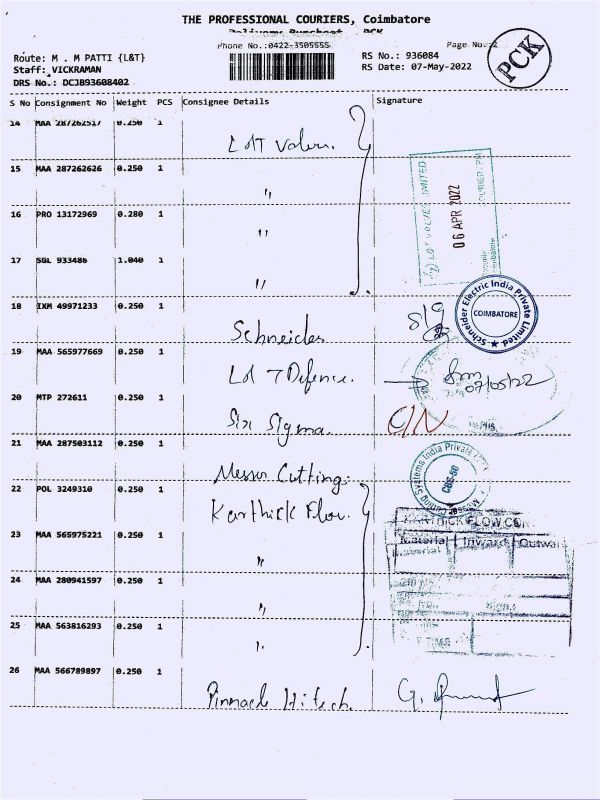 THE PROFESSIONAL COURIERS, Coimbatore
Delivery Runsheet - PCK
Phone No.:0422-3505555
Page No.:2
PCK
Route: M . M PATTI {L&T}
RS No.: 936084
Staff: VICKRAMAN
RS Date: 07-May-2022
DRS No.: DCJB93608402
S No Consignment No Weight PCS Consignee Details Signature
14 MAA 287262517 0.250 1
L&T Valves.
15 MAA 287262626 0.250 1
"
16 PRO 13172969 0.280 1
"
17 SGL 933486 1.040 1
"
06 APR 2022
18 IXM 49971233 0.250 1
Schneider
Schneider Electric India Private Limited
COIMBATORE
19 MAA 565977669 0.250 1
L&T Defence.
07/05/22
20 MTP 272611 0.250 1
Six Sigma.
21 MAA 287503112 0.250 1
Messer Cutting.
Cutting Systems India Private
22 POL 3249310 0.250 1
Karthick Flow.
KARTHICK FLOW CON
Material Inward Outward
23 MAA 565975221 0.250 1
"
24 MAA 280941597 0.250 1
"
Sign.
25 MAA 563816293 0.250 1
"
26 MAA 566789897 0.250 1
Pinnacle Hitech.